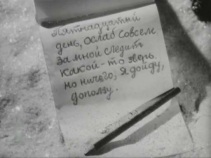 Пятнадцатый
день, ослаб совсем
за мной следить
какой-то зверь
но ничего, я дойду,
доползу.